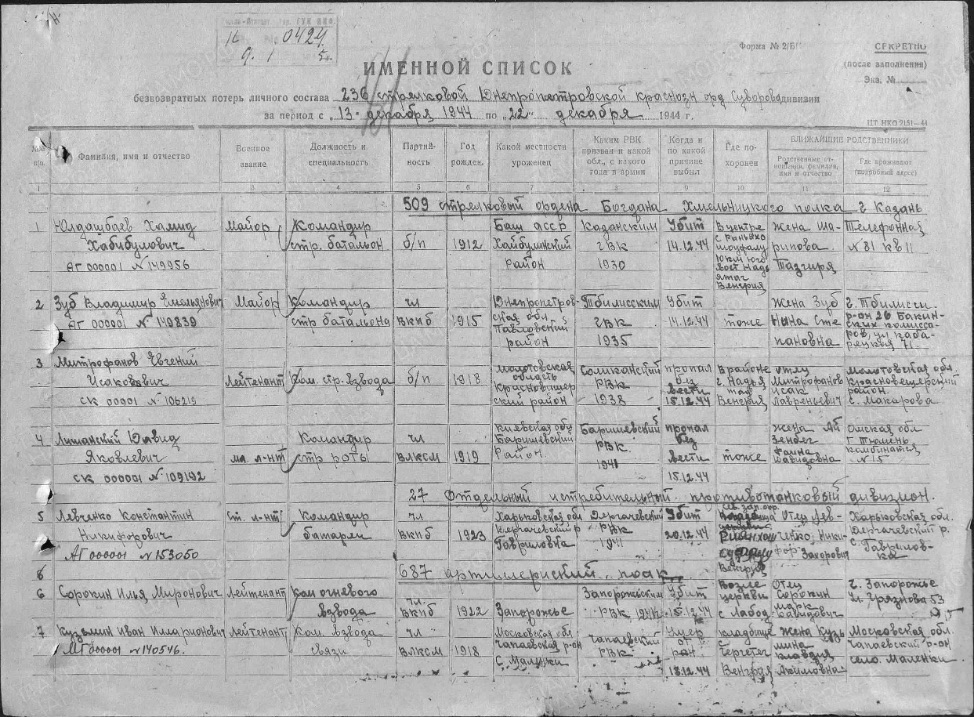 0424
Форма № 2/БП
СЕКРЕТНО
(после заполнения)
Экз. №
ИМЕННОЙ СПИСОК
безвозвратных потерь личного состава 236 стрелковой Днепропетровской краснозн орд Суворова дивизии
за период с 13 декабря 1944 по 22 декабря 1944 г.
Фамилия, имя и отчество
Военное звание
Должность и специальность
Партийность
Год рожден.
Какой местности уроженец
Каким РВК призван и какой обл., с какого года в армии
Когда и по какой причине выбыл
Где похоронен
БЛИЖАЙШИЕ РОДСТВЕННИКИ
1 2 3 4 5 6 7 8 9 10 11 12
509 стрелковый ордена Богдана Хмельницкого полка г Казань
1 Юлдашбаев Хамид Майор Командир Баш асср Казанским Убит В центре жена Ша- Телефонная
Хабибулович стр. батальон б/п 1912 Хайбулинский ГВК 14.12.44 рипова № 81 кв 11
АГ 000001 № 149956 район 1930 Тазгиря
Венгрия
2 Зуб Владимир Емельянович Майор Командир чл Днепропетров- Тбилисским Убит жена Зуб г. Тбилиси
АГ 000001 № 140839 стр батальона ВКПб 1915 ская обл ГВК 14.12.44 тоже Нина Сте р-он 26 Бакин-
Павловский район 1935 пановна ских комисса-
ров, ул
3 Митрофанов Евгений Молотовская пропал В районе отец Молотовская обл
Исакович Лейтенант Ком стр. взвода б/п 1918 область РВК без вести Митрофанов район
СК 00001 № 106219 район 1938 15.12.44 Венгрия Исак Лавреньевич с. Макарова
4 Яковлевич мл л-нт Командир стр роты чл ВЛКСМ 1919 Киевская обл Барышевский район Барышевский РВК 1941 пропал без вести 15.12.44 тоже жена Давидовна Омская обл г Тюмень комбинатск № 5
СК 000001 № 109192
27 Отдельный истребительный противотанковый дивизион.
5 Левченко Константин Ст. л-нт Командир чл Харьковская обл Дергачевский Убит Отец Лев- Харьковская обл
Никифорович батареи ВКПб 1923 Дергачевский р РВК 20.12.44 ченко, Ники- Дергачевский р.
АГ 000001 № 153050 Гавриловка 1941 Венгрия фор Захарович с. Гаврилов-
ка
6 687 артиллериский полк
6 Сорокин Илья Миронович Лейтенант Ком огневого чл. Запорожским Убит Возле Отец г. Запорожье
взвода ВКПб 1922 Запорожье РВК 15.12.44 церкви Сорокин ул. Грязнова 53
с Лабод Марк Давидович
7 Кузьмин Иван Илларионович Лейтенант Ком. взвода чл Московская обл Чапаевский Умер кладбище жена Кузь Московская обл.
МГ 00001 № 140546. связи ВЛКСМ 1918 Чапаевский р-он РВК от ран мина Чапаевский р-он
с Маленки 18.12.44 Венгрия Клавдия Акимовна село Маленки